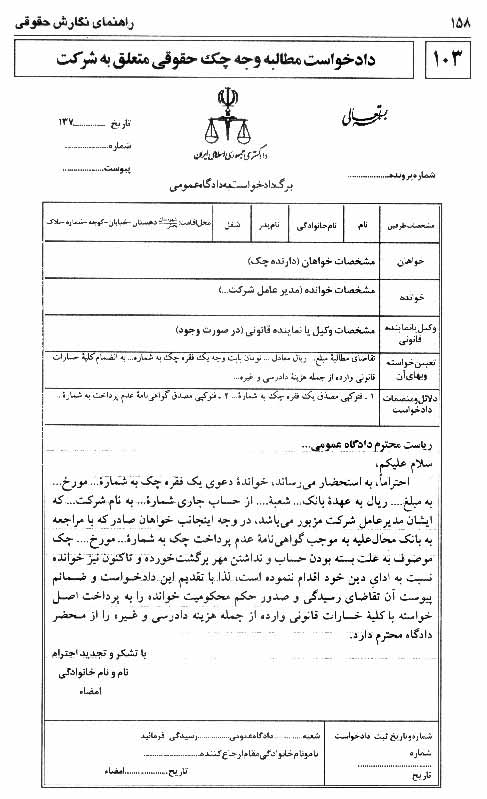 ۱۵۸ راهنمای نگارش حقوقی
۱۰۳ دادخواست مطالبه وجه چک حقوقی متعلق به شرکت
بسمه‌تعالی
دادگستری جمهوری اسلامی ایران
تاریخ ............ ۱۳۷
شماره....................
پیوست..................
شماره پرونده..................
برگ دادخواست به دادگاه عمومی
مشخصات طرفین نام نام خانوادگی نام پدر شغل محل اقامت: شهرستان بخش دهستان-خیابان-کوچه-شماره-پلاک
خواهان مشخصات خواهان (دارنده چک)
خوانده مشخصات خوانده (مدیر عامل شرکت...)
وکیل یا نماینده قانونی مشخصات وکیل یا نماینده قانونی (در صورت وجود)
تعیین خواسته وبهای آن تقاضای مطالبهٔ مبلغ... ریال معادل ... تومان بابت وجه یک فقره چک به شماره... به انضمام کلیهٔ خسارات
قانونی وارده از جمله هزینهٔ دادرسی و غیره...
دلائل و منضمات دادخواست ۱ ـ فتوکپی مصدق یک فقره چک به شمارهٔ... ۲ ـ فتوکپی مصدق گواهی‌نامهٔ عدم پرداخت به شمارهٔ..
ریاست محترم دادگاه عمومی...
سلام علیکم،
احتراماً، به استحضار می‌رساند، خواندهٔ دعوی یک فقره چک به شمارهٔ... مورخ...
به مبلغ.... ریال به عهدهٔ بانک... شعبهٔ.... از حساب جاری شمارهٔ... به نام شرکت.... که
ایشان مدیرعامل شرکت مزبور می‌باشد، در وجه اینجانب خواهان صادر که با مراجعه
به بانک محال‌علیه به موجب گواهی‌نامهٔ عدم پرداخت چک به شمارهٔ...مورخ.... چک
موصوف به علت بسته بودن حساب و نداشتن مهر برگشت‌خورده و تاکنون نیز خوانده
نسبت به ادای دین خود اقدام ننموده است، لذا با تقدیم این دادخواست و ضمائم
پیوست آن تقاضای رسیدگی و صدور حکم محکومیت خوانده را به پرداخت اصل
خواسته با کلیهٔ خسارات قانونی وارده از جمله هزینه دادرسی و غیره را از محضر
دادگاه محترم دارد.
با تشکر و تجدید احترام
نام و نام خانوادگی
امضاء
شماره و تاریخ ثبت دادخواست
شماره
........................
تاریخ
شعبه............ دادگاه عمومی.............. رسیدگی فرمائید
نام و نام خانوادگی مقام ارجاع کننده........................
تاریخ.................. امضاء